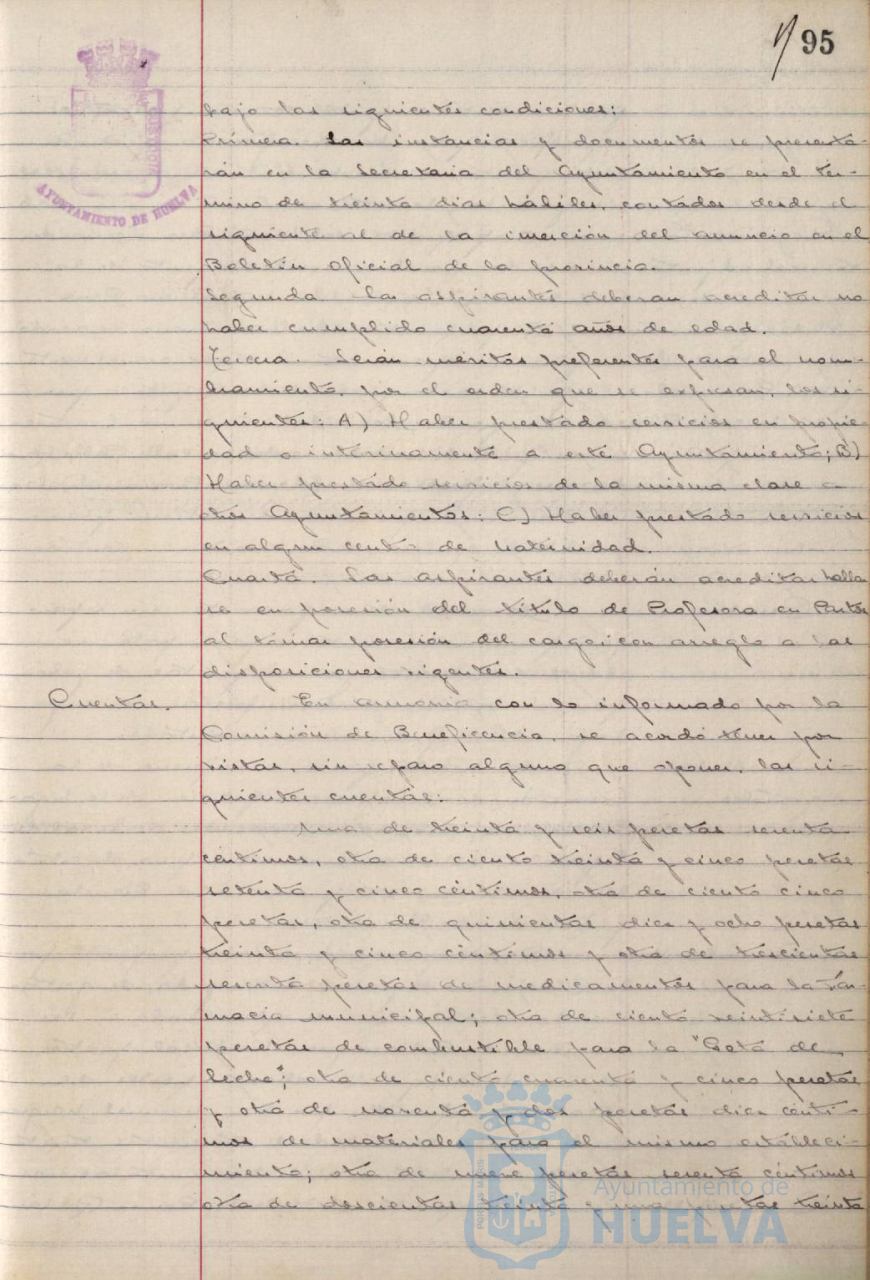 95
AYUNTAMIENTO DE HUELVA
bajo las siguientes condiciones:
Primera. Las instancias y documentos se presenta-
rán en la Secretaria del Ayuntamiento en el tér-
mino de treinta dias hábiles, contados desde el
siguiente al de la inserción del anuncio en el
Boletin Oficial de la provincia.
Segunda Las aspirantes deberan acreditar no
haber cumplido cuarenta años de edad.
Tercera. Serán méritos preferentes para el nom-
bramiento, por el orden que se expresan, los si-
guientes: A) Haber prestado servicios en propie-
dad o interinamente a este Ayuntamiento; B)
Haber prestado servicios de la misma clase a
otros Ayuntamientos: C) Haber prestado servicios
en algun centro de Maternidad.
Cuarta. Las aspirantes deberán acreditar halla
se en posesión del titulo de Profesora en Partos
al tomar posesión del cargo; con arreglo a las
disposiciones vigentes.
Cuentas. En armonia con lo informado por la
Comisión de Beneficencia, se acordó tener por
vistas, sin reparo alguno que oponer, las si-
guientes cuentas:
Una de treinta y seis pesetas sesenta
céntimos, otra de ciento treinta y cinco pesetas
setenta y cinco céntimos, otra de ciento cinco
pesetas, otra de quinientas diez y ocho pesetas
treinta y cinco céntimos y otra de trescientas
sesenta pesetas de medicamentos para la Far-
macia municipal; otra de ciento veintisiete
pesetas de combustible para la "Gota de
leche"; otra de ciento cuarenta y cinco pesetas
y otra de noventa y dos pesetas diez cénti-
mos de materiales para el mismo estableci-
miento; otra de nueve pesetas sesenta céntimos
otra de doscientas treinta y una pesetas treinta
Ayuntamiento de
HUELVA